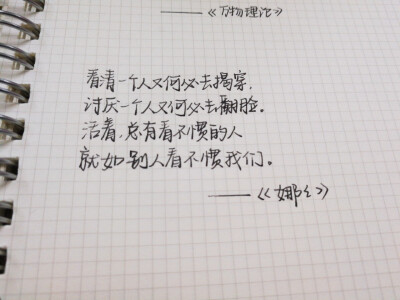 ——《万物理论》
看清一个人又何必去揭穿,
讨厌一个人又何必去翻脸.
活着,总有看不惯的人
就如别人看不惯我们。
——《娜么》